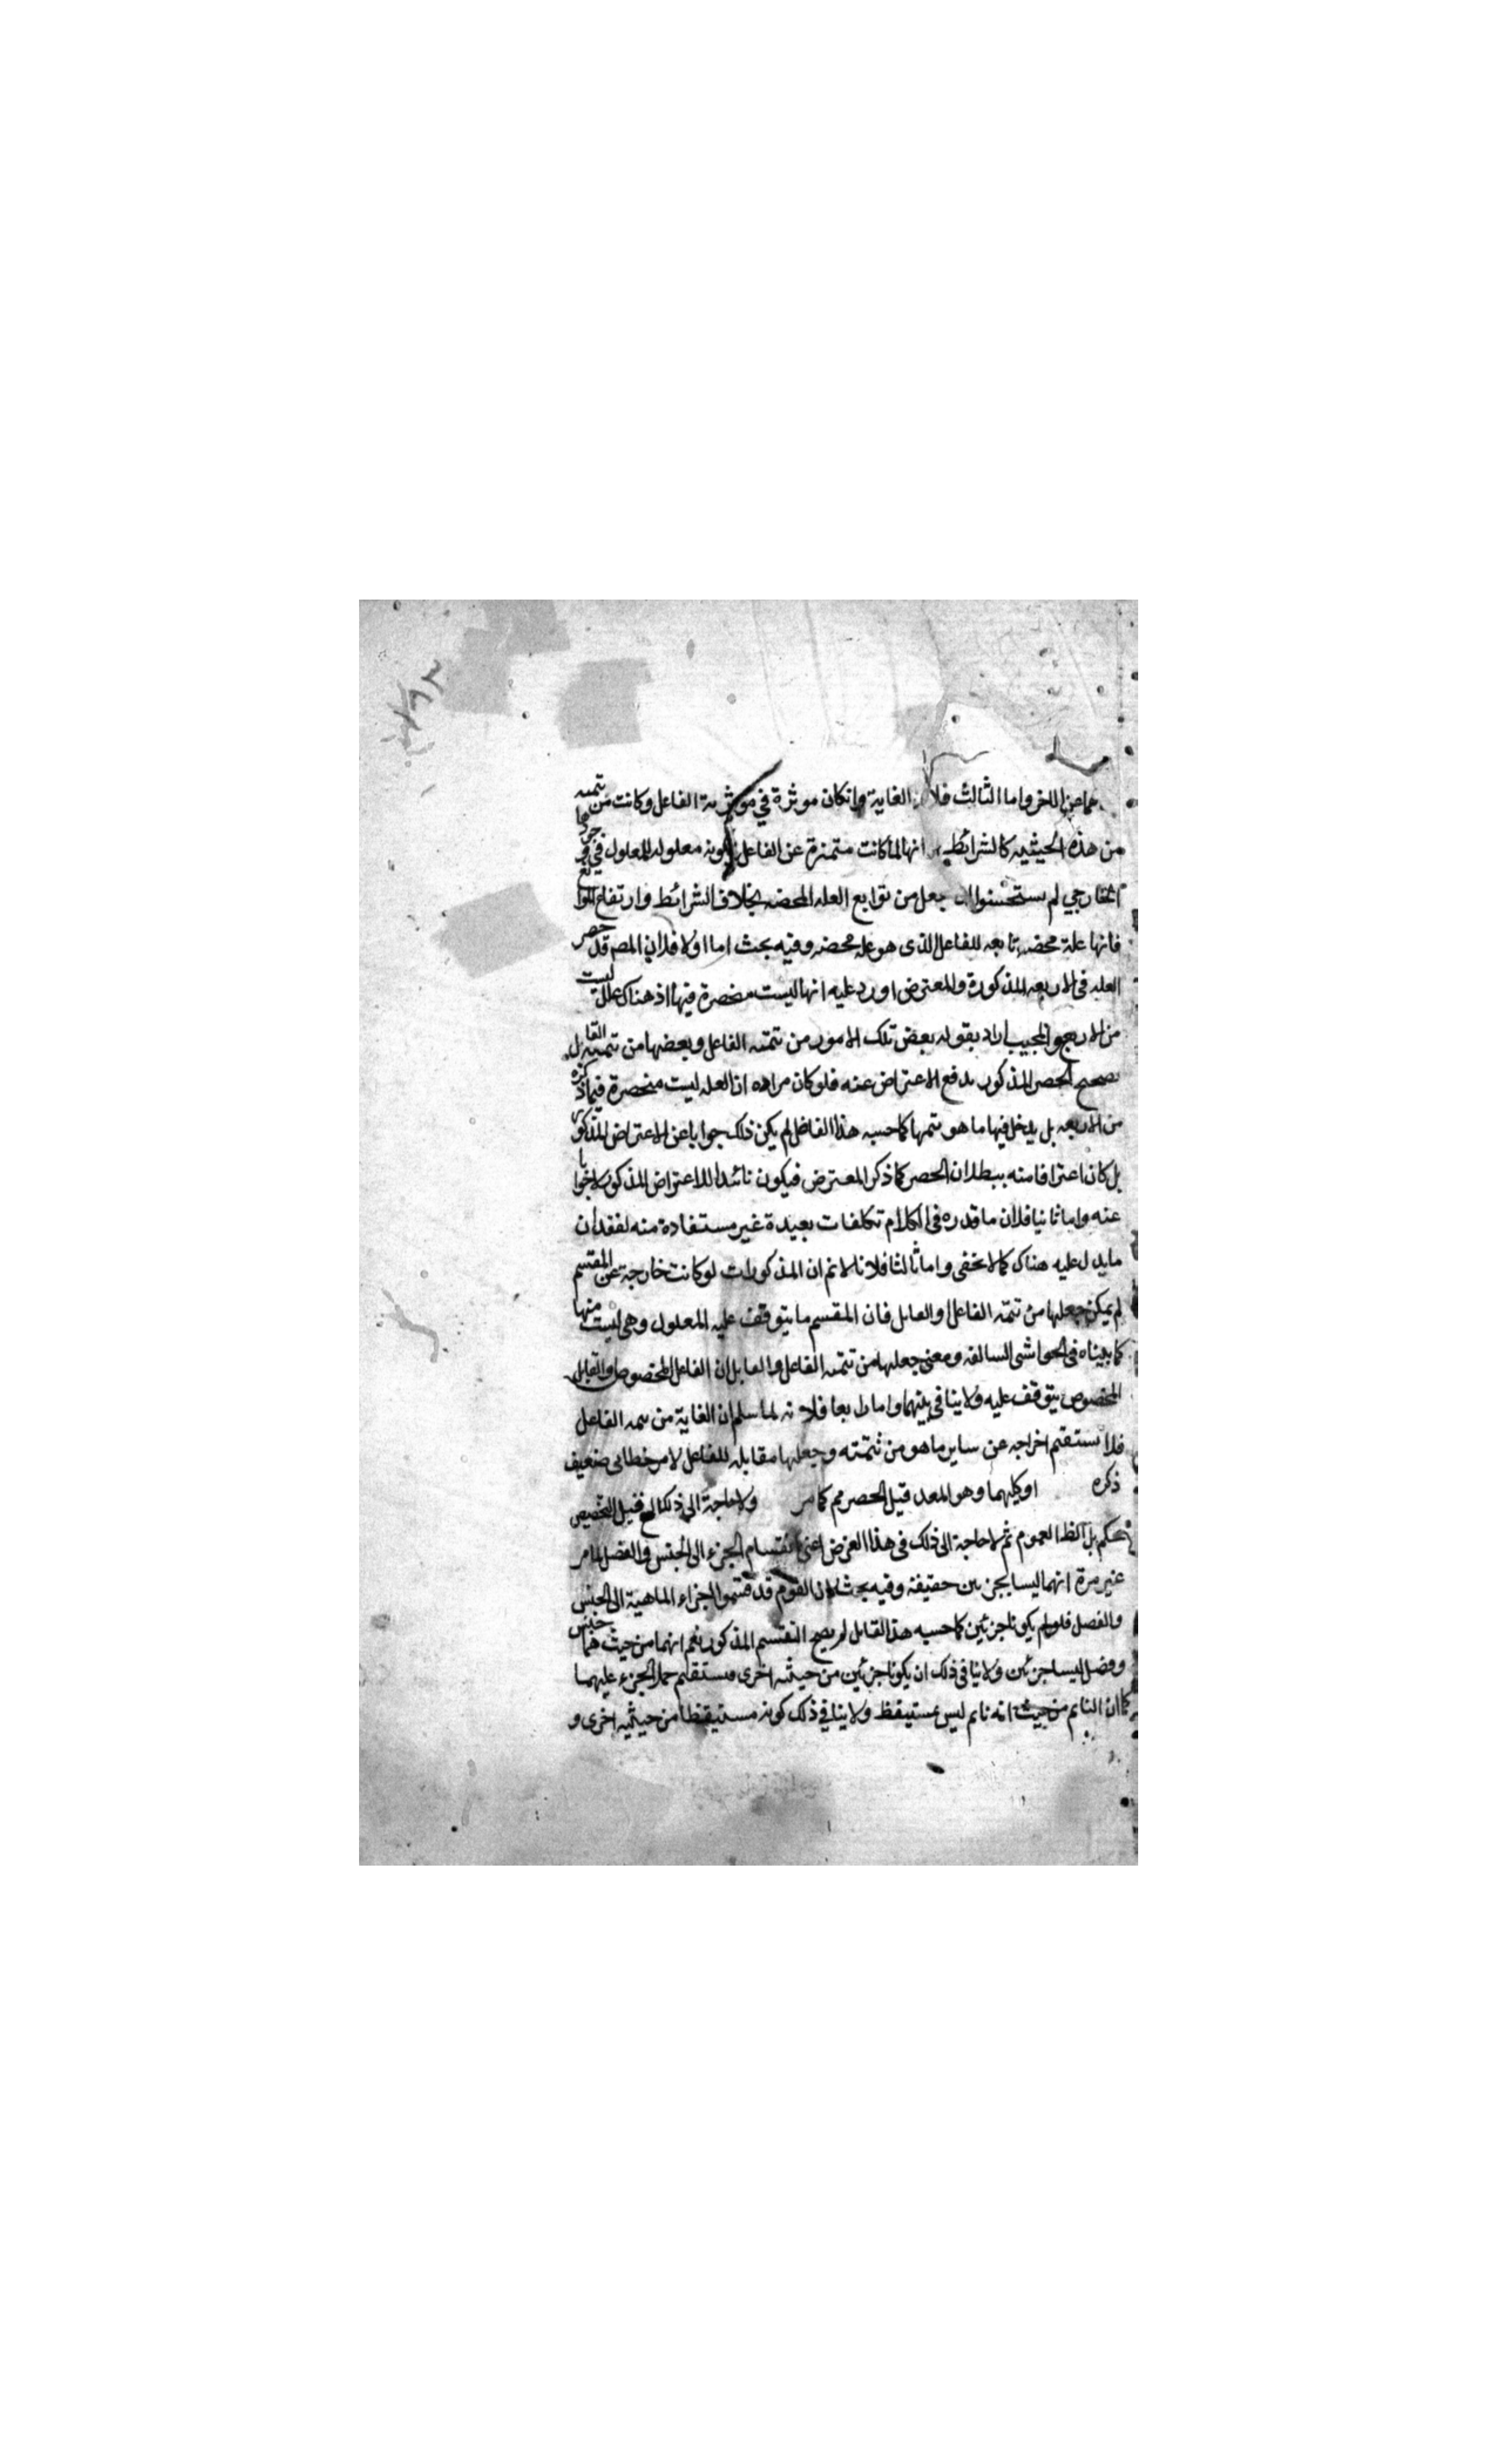 عن الاخر واما الثالث فلان الغاية وانكان موثرة في موثرية الفاعل وكانت من تتمته
من هذه الحيثية كالشرائط انها لما كانت متميزة عن الفاعل بكونه معلوله للمعلول في وجودها
الخارجي لم يستحسنوا ان يجعل من توابع العله المحضه بخلاف الشرائط وارتفاع الموانع
فانها علة محضه تابعه للفاعل الذى هو علة محضه وفيه بحث اما اولا فلان المصم قد حصر
العله فى الاربعه المذكورة والمعترض اورد عليه انها ليست منحصرة فيها اذ هناك علل ليست
من الاربع والمجيب اراد بقوله بعض تلك الامور من تتمته الفاعل وبعضها من تتمه القابل
تصحيح الحصر المذكور بدفع الاعتراض عنه فلو كان مراده ان العله ليست منحصرة فيما ذكره
من الاربعه بل يدخل فيها ما هو تتمها كما حسبه هذا الفاضل لم يكن ذلك جوابا عن الاعتراض المذكور
بل كان اعترافا منه ببطلان الحصر كما ذكر المعترض فيكون تائيدا للاعتراض المذكور لا جوابا
عنه واما ثانيا فلان ما قدره فى الكلام تكلفات بعيدة غير مستفادة منه لفقدان
ما يدل عليه هناك كما لا يخفى واما ثالثا فلانا لا نم ان المذكورات لو كانت خارجة عن المقسم
لم يمكن جعلها من تتمته الفاعل والقابل فان المقسم ما يتوقف عليه المعلول وهى ليست منها
كما بيناه فى الحواشى السالفه ومعنى جعلها من تتمته الفاعل والقابل ان الفاعل المخصوص والقابل
المخصوص يتوقف عليه ولا ينافى بينهما واما رابعا فلانه لما سلم ان الغاية من تتمه الفاعل
فلا يستقيم اخراجه عن ساير ما هو من تتمته وجعلها مقابله للفاعل لامر خطابى ضعيف
ذكره او كليهما وهو المعد قيل الحصر مم كما مر ولا حاجة الى ذلك الخ قيل التخصيص
تحكم بل الظ العموم ثم لا حاجة الى ذلك فى هذا الغرض اعنى انقسام الجزء الى الجنس والفصل لما مر
غير مرة انهما ليسا بجزئين حقيقة وفيه بحث لان القوم قد قسموا اجزاء الماهية الى الجنس
والفصل فلو لم يكونا جزئين كما حسبه هذا القايل لم يصح التقسيم المذكور نعم انهما من حيث هما جنس
وفصل ليسا جزئين ولا ينافى ذلك ان يكونا جزئين من حيثيه اخرى فيستقيم حمل الجزء عليهما
كما ان النايم من حيث انه نايم ليس بمستيقظ ولا ينافي ذلك كونه مستيقظا من حيثيه اخرى و